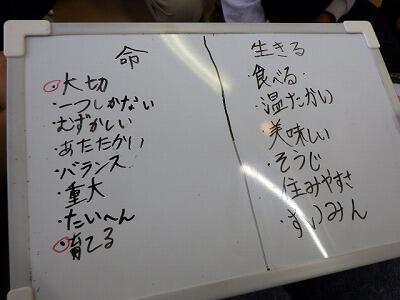 命
・大切
・一つしかない
・むずかしい
・あたたかい
・バランス
・重大
・たいへん
・育てる
生きる
・食べる・
・温たかい
・美味しい
・そうじ
・住みやすさ
・すいみん